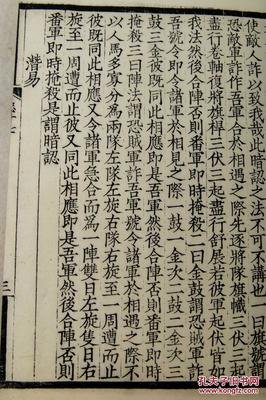 使敵人詐以致我哉此暗認之法不可不講也一曰旗號謂
恐敵軍詐作吾軍合於相遇之際先逐將隊旗幟三伏三起
盡行卷軸復將旗桿三伏三起盡行舒展若彼軍起伏皆如
我法然後合陣否則番軍即時掩殺二曰金鼓謂恐賊軍詐
吾號令即令諸軍於相見之際一鼓一金次二鼓二金次三
鼓三金彼既同此相應即是吾軍然後合陣否則番軍即時
掩殺三曰陣法謂恐賊軍詐吾軍號令諸軍於相遇之際不
以人馬多寡分為兩隊左隊左旋右隊右旋至一周遭而止
彼既同此相應又令諸軍急合而為一陣雙日左旋隻日右
旋至一周遭而止彼又同此相應即是吾軍然後合陣否則
番軍即時掩殺是謂暗認
潛易
三
孔夫子旧书网